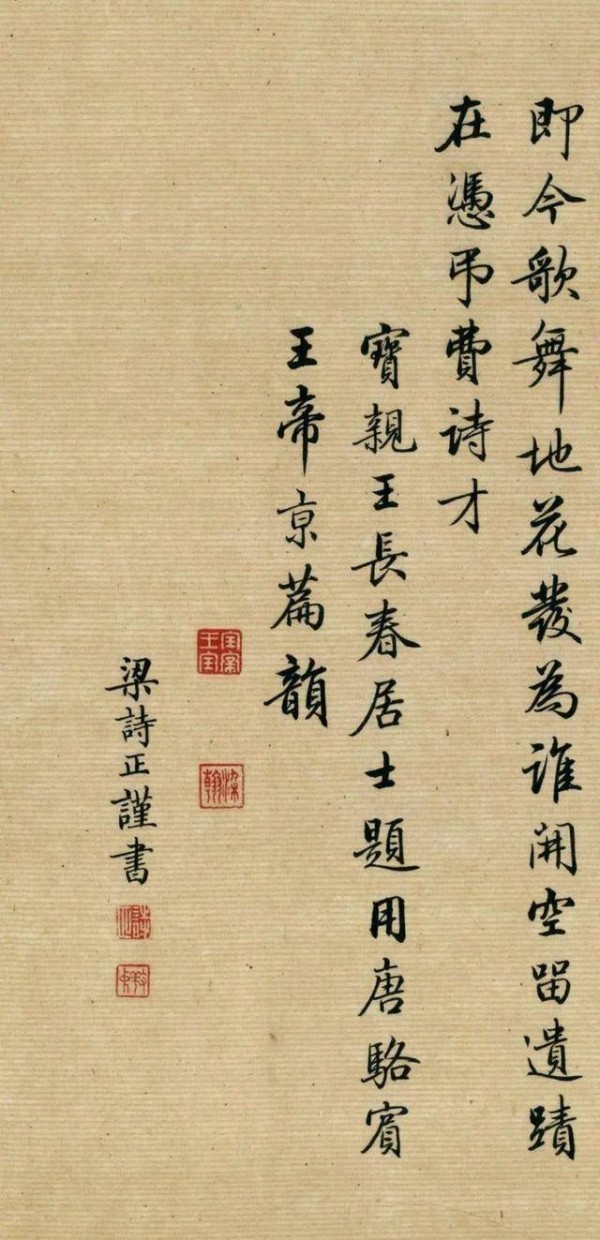 即今歌舞地花發為誰開空留遺蹟
在憑弔費詩才
寶親王長春居士題用唐駱賓
王帝京篇韻
梁詩正謹書